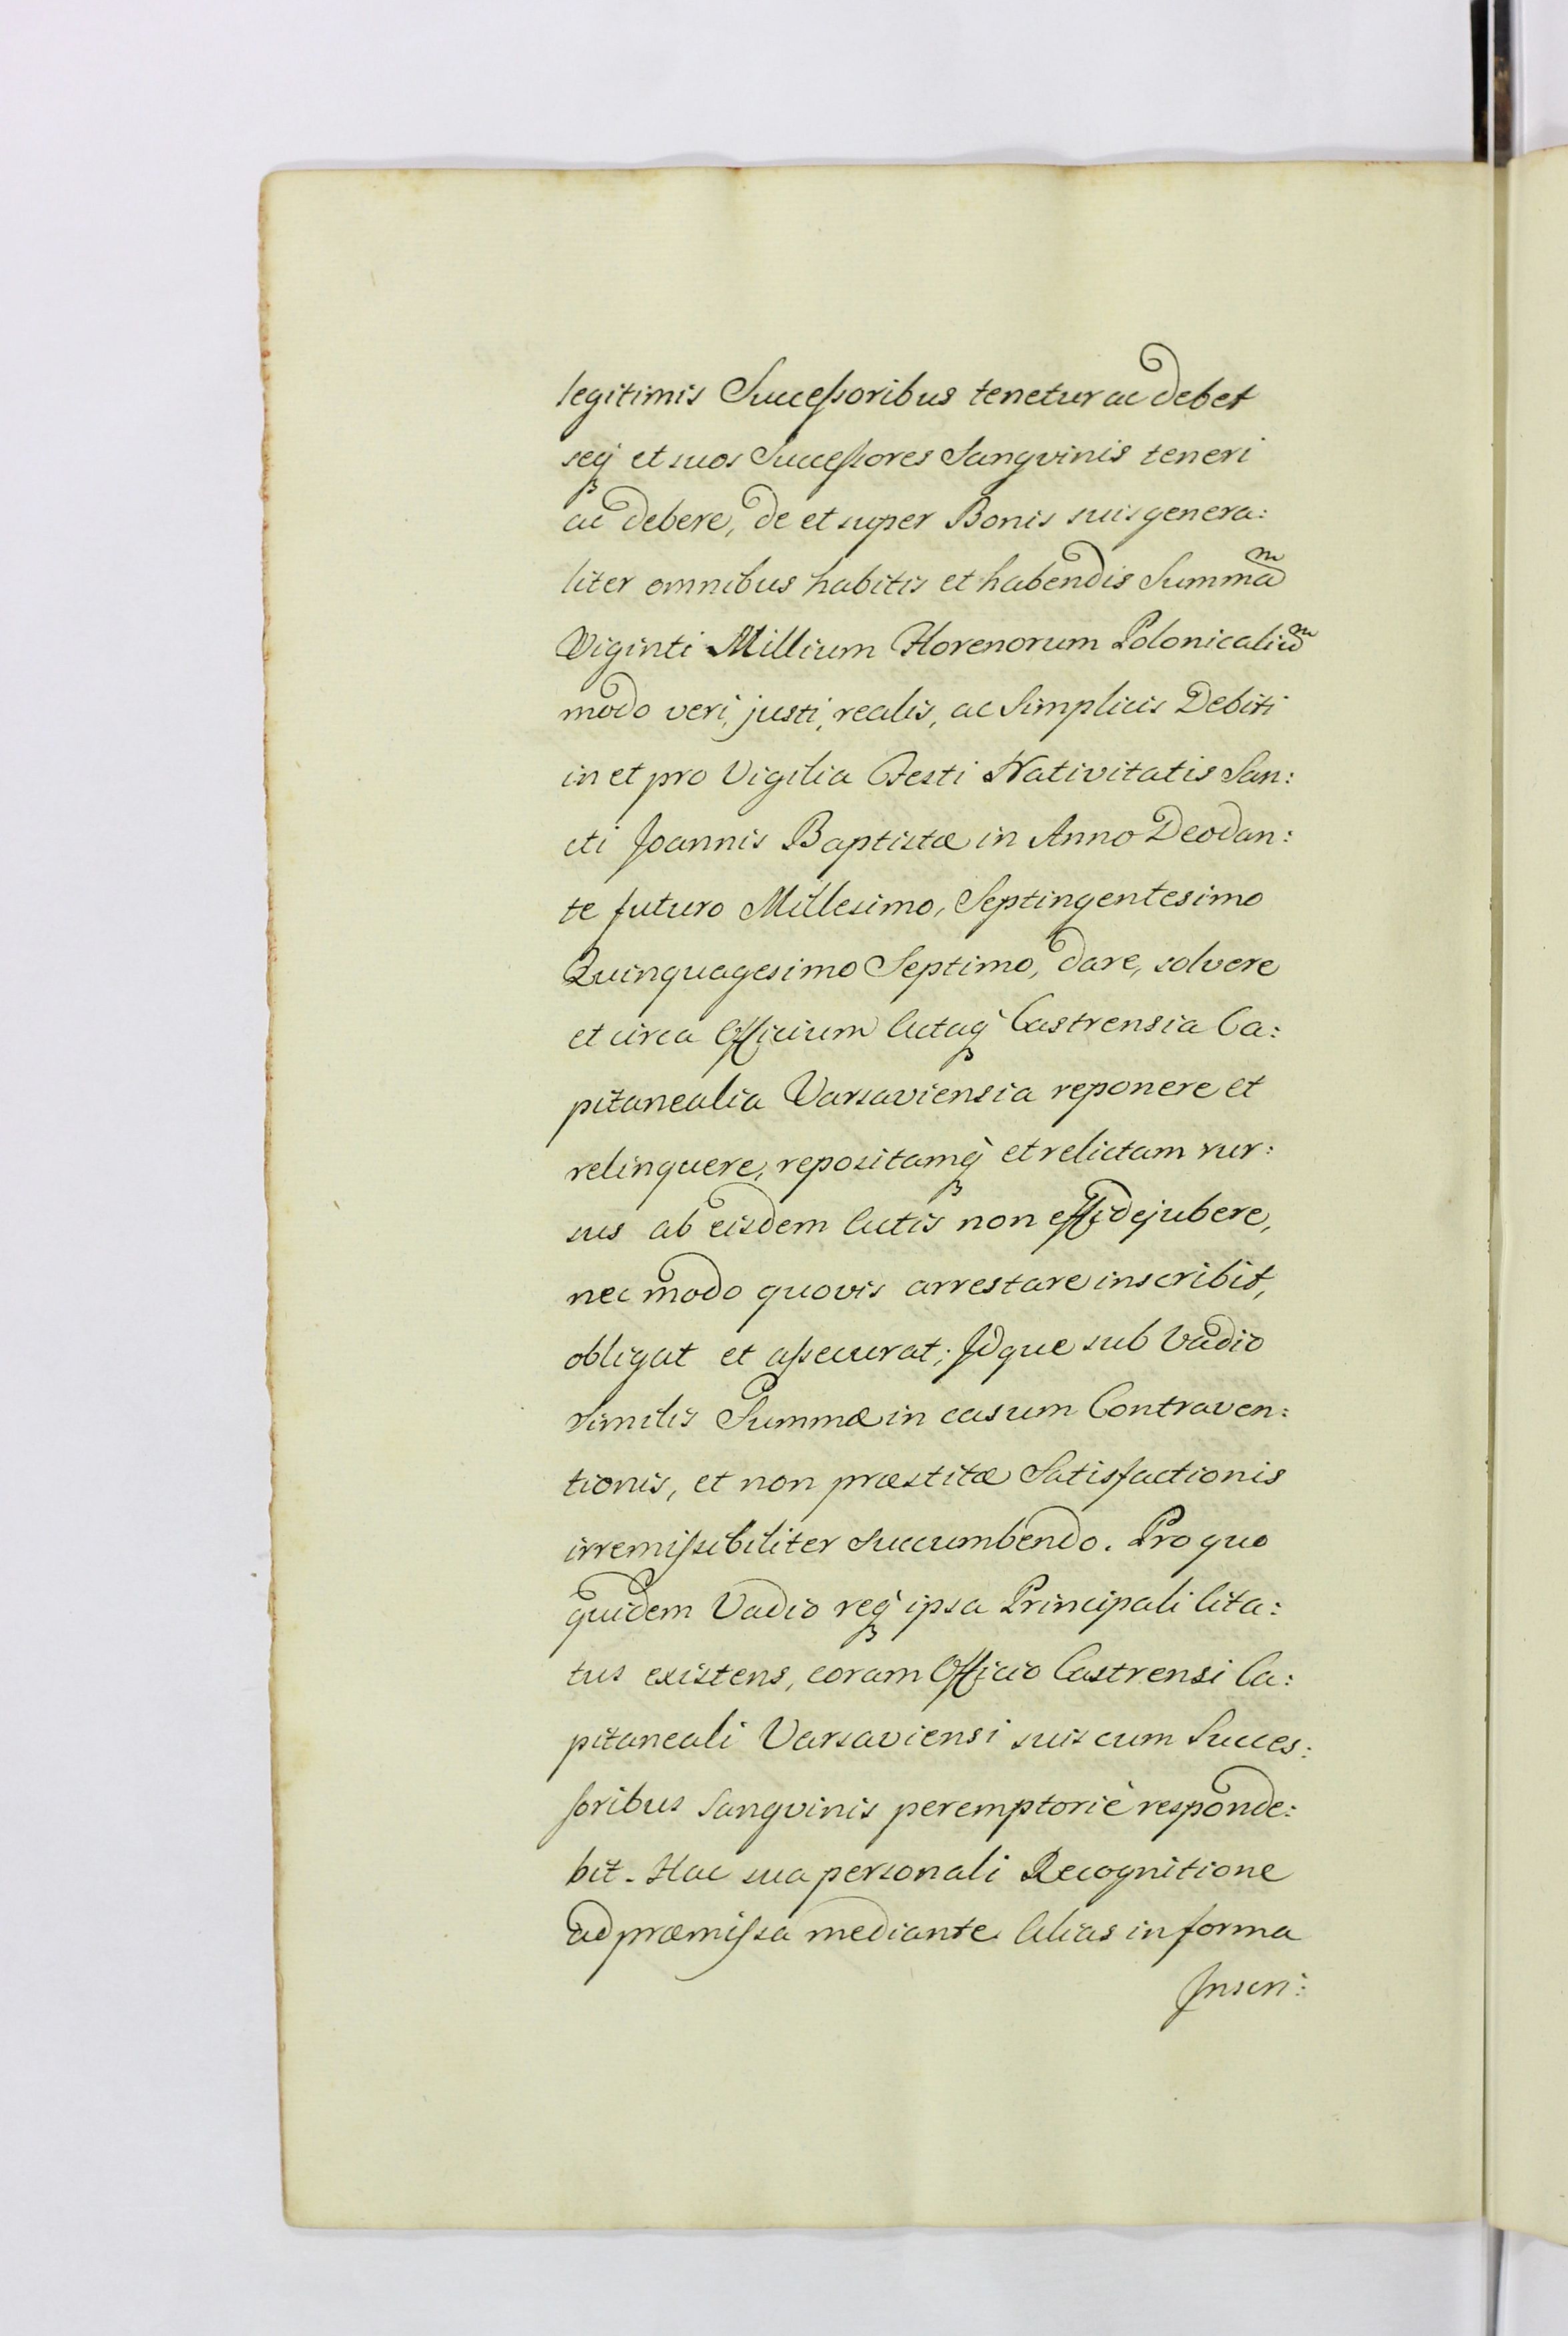 legitimis Successoribus tenetur ac debet
seq̃ et suos Successores Sangvinis teneri
ac debere, de et super Bonis suis genera:
liter omnibus habitis et habendis Summaᵐ
Viginti Millium Florenorum Polonicaliuᵐ
modo veri, justi, realis, ac Simplicis Debiti
in et pro Vigilia Festi Nativitatis San:
cti Joannis Baptistæ in Anno Deodan:
te futuro Millesimo, Septingentesimo
Quinquagesimo Septimo, dare, solvere
et circa Officium Actaq̃ Castrensia Ca:
pitanealia Varsaviensia reponere et
relinquere, repositamq̃ et relictam rur:
sus ab eisdem Actis non effidejubere,
nec modo quovis arrestare inscribit,
obligat et assecurat; Idque sub Vadio
Similis Summæ in casum Contraven:
tionis, et non præstitæ Satisfactionis
irremissibiliter Succumbendo. Pro quo
quidem Vadio req̃ ipsa Principali Cita:
tus existens, coram Officio Castrensi Ca:
pitaneali Varsaviensi suis cum Succes:
soribus Sangvinis peremptoriè responde:
bit. Hac sua personali Recognitione
ad præmissa mediante Alias in forma
Inscri: